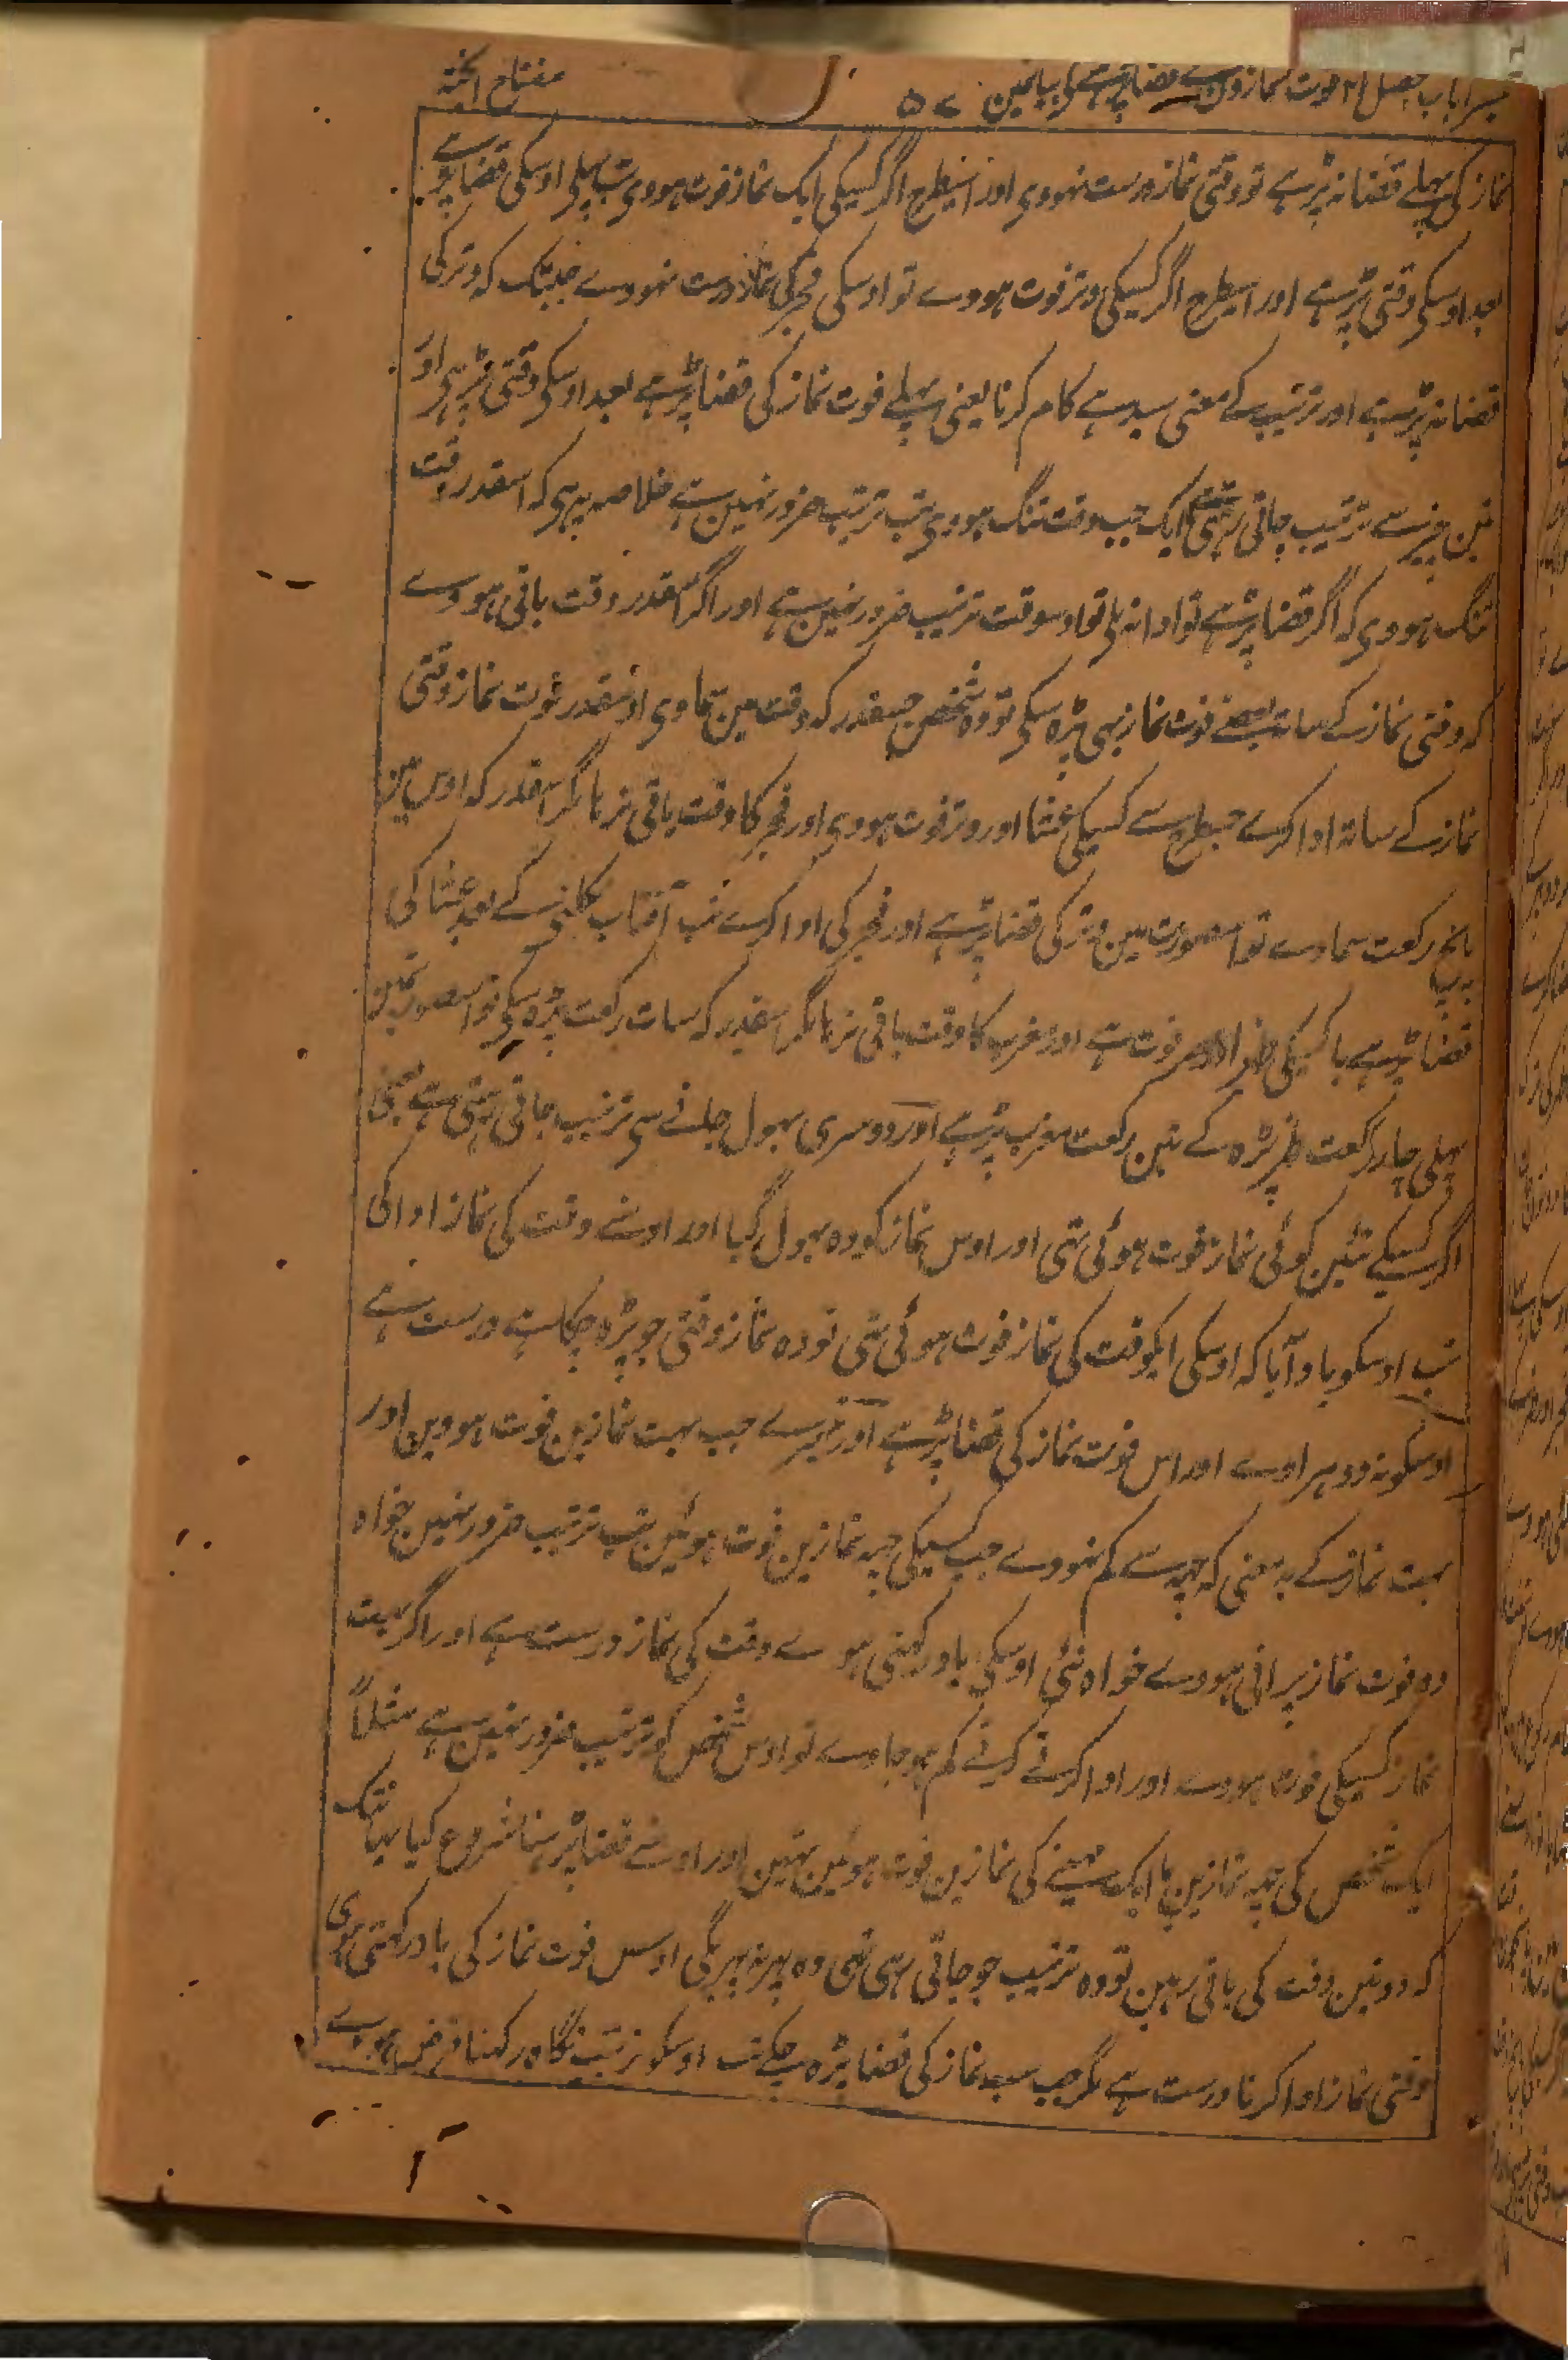 تیسرا باب فصل ۱۲ فوت نمازوں کے قضا پڑہنے کے بیانمین ۵۷ مفتاح الجنۃ
نماز کی پہلے قضا نہ پڑہے تو وقتی نماز درست نہووی اور اسیطرح اگر کسیکی ایک نماز فوت ہووی تب پہلی اوسکی قضا پڑہے
بعد اوسکی وقتی پڑہے اور اسیطرح اگر کسیکی وتر فوت ہووے تو اوسکی فجر کی نماز درست نہووے جبتک کہ وتر کی
قضا نہ پڑہے اور ترتیب کے معنی سیدہے کام کرنا یعنی پہلے فوت نماز کی قضا پڑہے بعد اوسکی وقتی پڑہی اور
تین چیز سے ترتیب جاتی رہتی ہے ایک جب وقت تنگ ہووی تب ترتیب ضرور نہین ہے خلاصہ یہ ہی کہ اسقدر وقت
تنگ ہووی کہ اگر قضا پڑہے تو ادا نہ ملی تو اوسوقت ترتیب ضرور نہین ہے اور اگر اسقدر وقت باقی ہووے
کہ وقتی نماز کے ساتہ بعضے فوت نماز بہی پڑہ سکی تو وہ شخص جسقدر کہ وقت مین سماوی اوسقدر فوت نماز وقتی
نماز کے ساتہ ادا کرے جسطرح سے کسیکی عشا اور وتر فوت ہووی اور فجر کا وقت باقی نرہا مگر اسقدر کہ اوس مین
پانچ رکعت سماوے تو اسصورت مین وتر کی قضا پڑہے اور فجر کی ادا کرے تب آفتاب نکلنی کے بعد عشا کی
قضا پڑہے یا کسیکی ظہر اور عصر فوت ہے اور مغرب کا وقت باقی نرہا مگر اسقدر کہ سات رکعت پڑہ سکی تو اسصورتمین
پہلی چار رکعت ظہر پڑہ کے تین رکعت مغرب پڑہے اور دوسری بہول جانے سی ترتیب جاتی رہتی ہے یعنی
اگر کسیکے تئین کوئی نماز فوت ہوئی تہی اور اوس نماز کو وہ بہول گیا اور اوسنے وقت کی نماز ادا کی
تب اوسکو یاد آیا کہ اوسکی ایکوقت کی نماز فوت ہوئی تہی تو وہ نماز وقتی جو پڑہ چکا ہے درست ہے
اوسکو نہ دوہراوے اور اس فوت نماز کی قضا پڑہے اور تیسرے جب بہت نمازین فوت ہووین اور
بہت نماز کے یہ معنی کہ چہہ سے کم نہووے جب کسیکی چہہ نمازین فوت ہوئین تب ترتیب ضرور نہین خواہ
وہ فوت نماز پرانی ہووے خواہ نئی اوسکی یاد رکہنی ہوے وقت کی نماز درست ہے اور اگر بہت
نماز کسیکی فوت ہووے اور ادا کرتے کرتے کم ہوجاوے تو اوس شخص کو ترتیب ضرور نہین ہے مثلاً
ایک شخص کی چہہ نمازین یا ایک مہینے کی نمازین فوت ہوئین تہین اور اوسنے قضا پڑہنا شروع کیا یہانتک
کہ دو تین وقت کی باقی رہین تو وہ ترتیب جو جاتی رہی تہی وہ پہر نہ پہریگی اوس فوت نماز کی یاد رکہتی ہوی
وقتی نماز ادا کرنا درست ہے مگر جب سب نماز کی قضا پڑہ چکے تب اوسکو ترتیب نگاہ رکہنا فرض ہووے